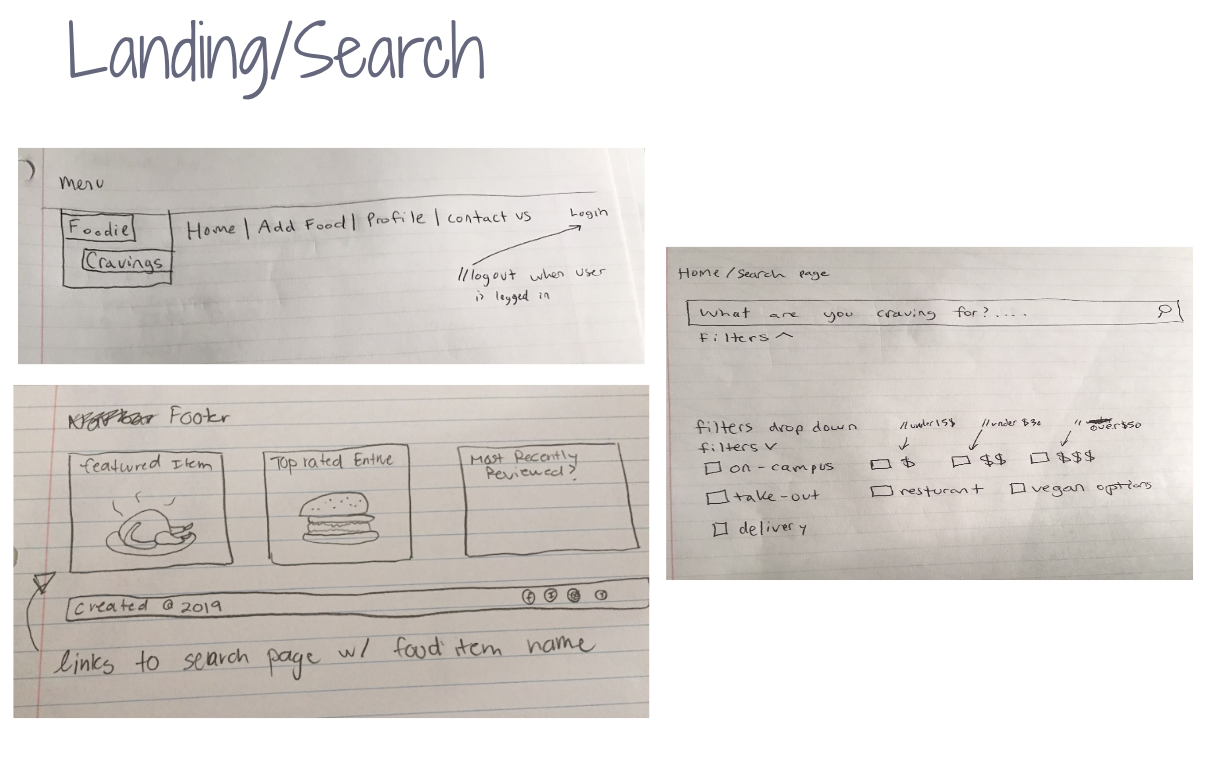 Landing/Search
menu
Foodie
Cravings
Home | Add Food | Profile | contact us
Login
//logout when user
is logged in
Footer
featured Item
Top rated Entrée
Most Recently
Reviewed?
Created @ 2019
links to search page w/ food item name
Home / Search page
What are you craving for?....
Filters ^
filters drop down
//under 15$
//under $30
// over $50
filters v
on-campus
$
$$
$$$
take-out
resturant
vegan options
delivery